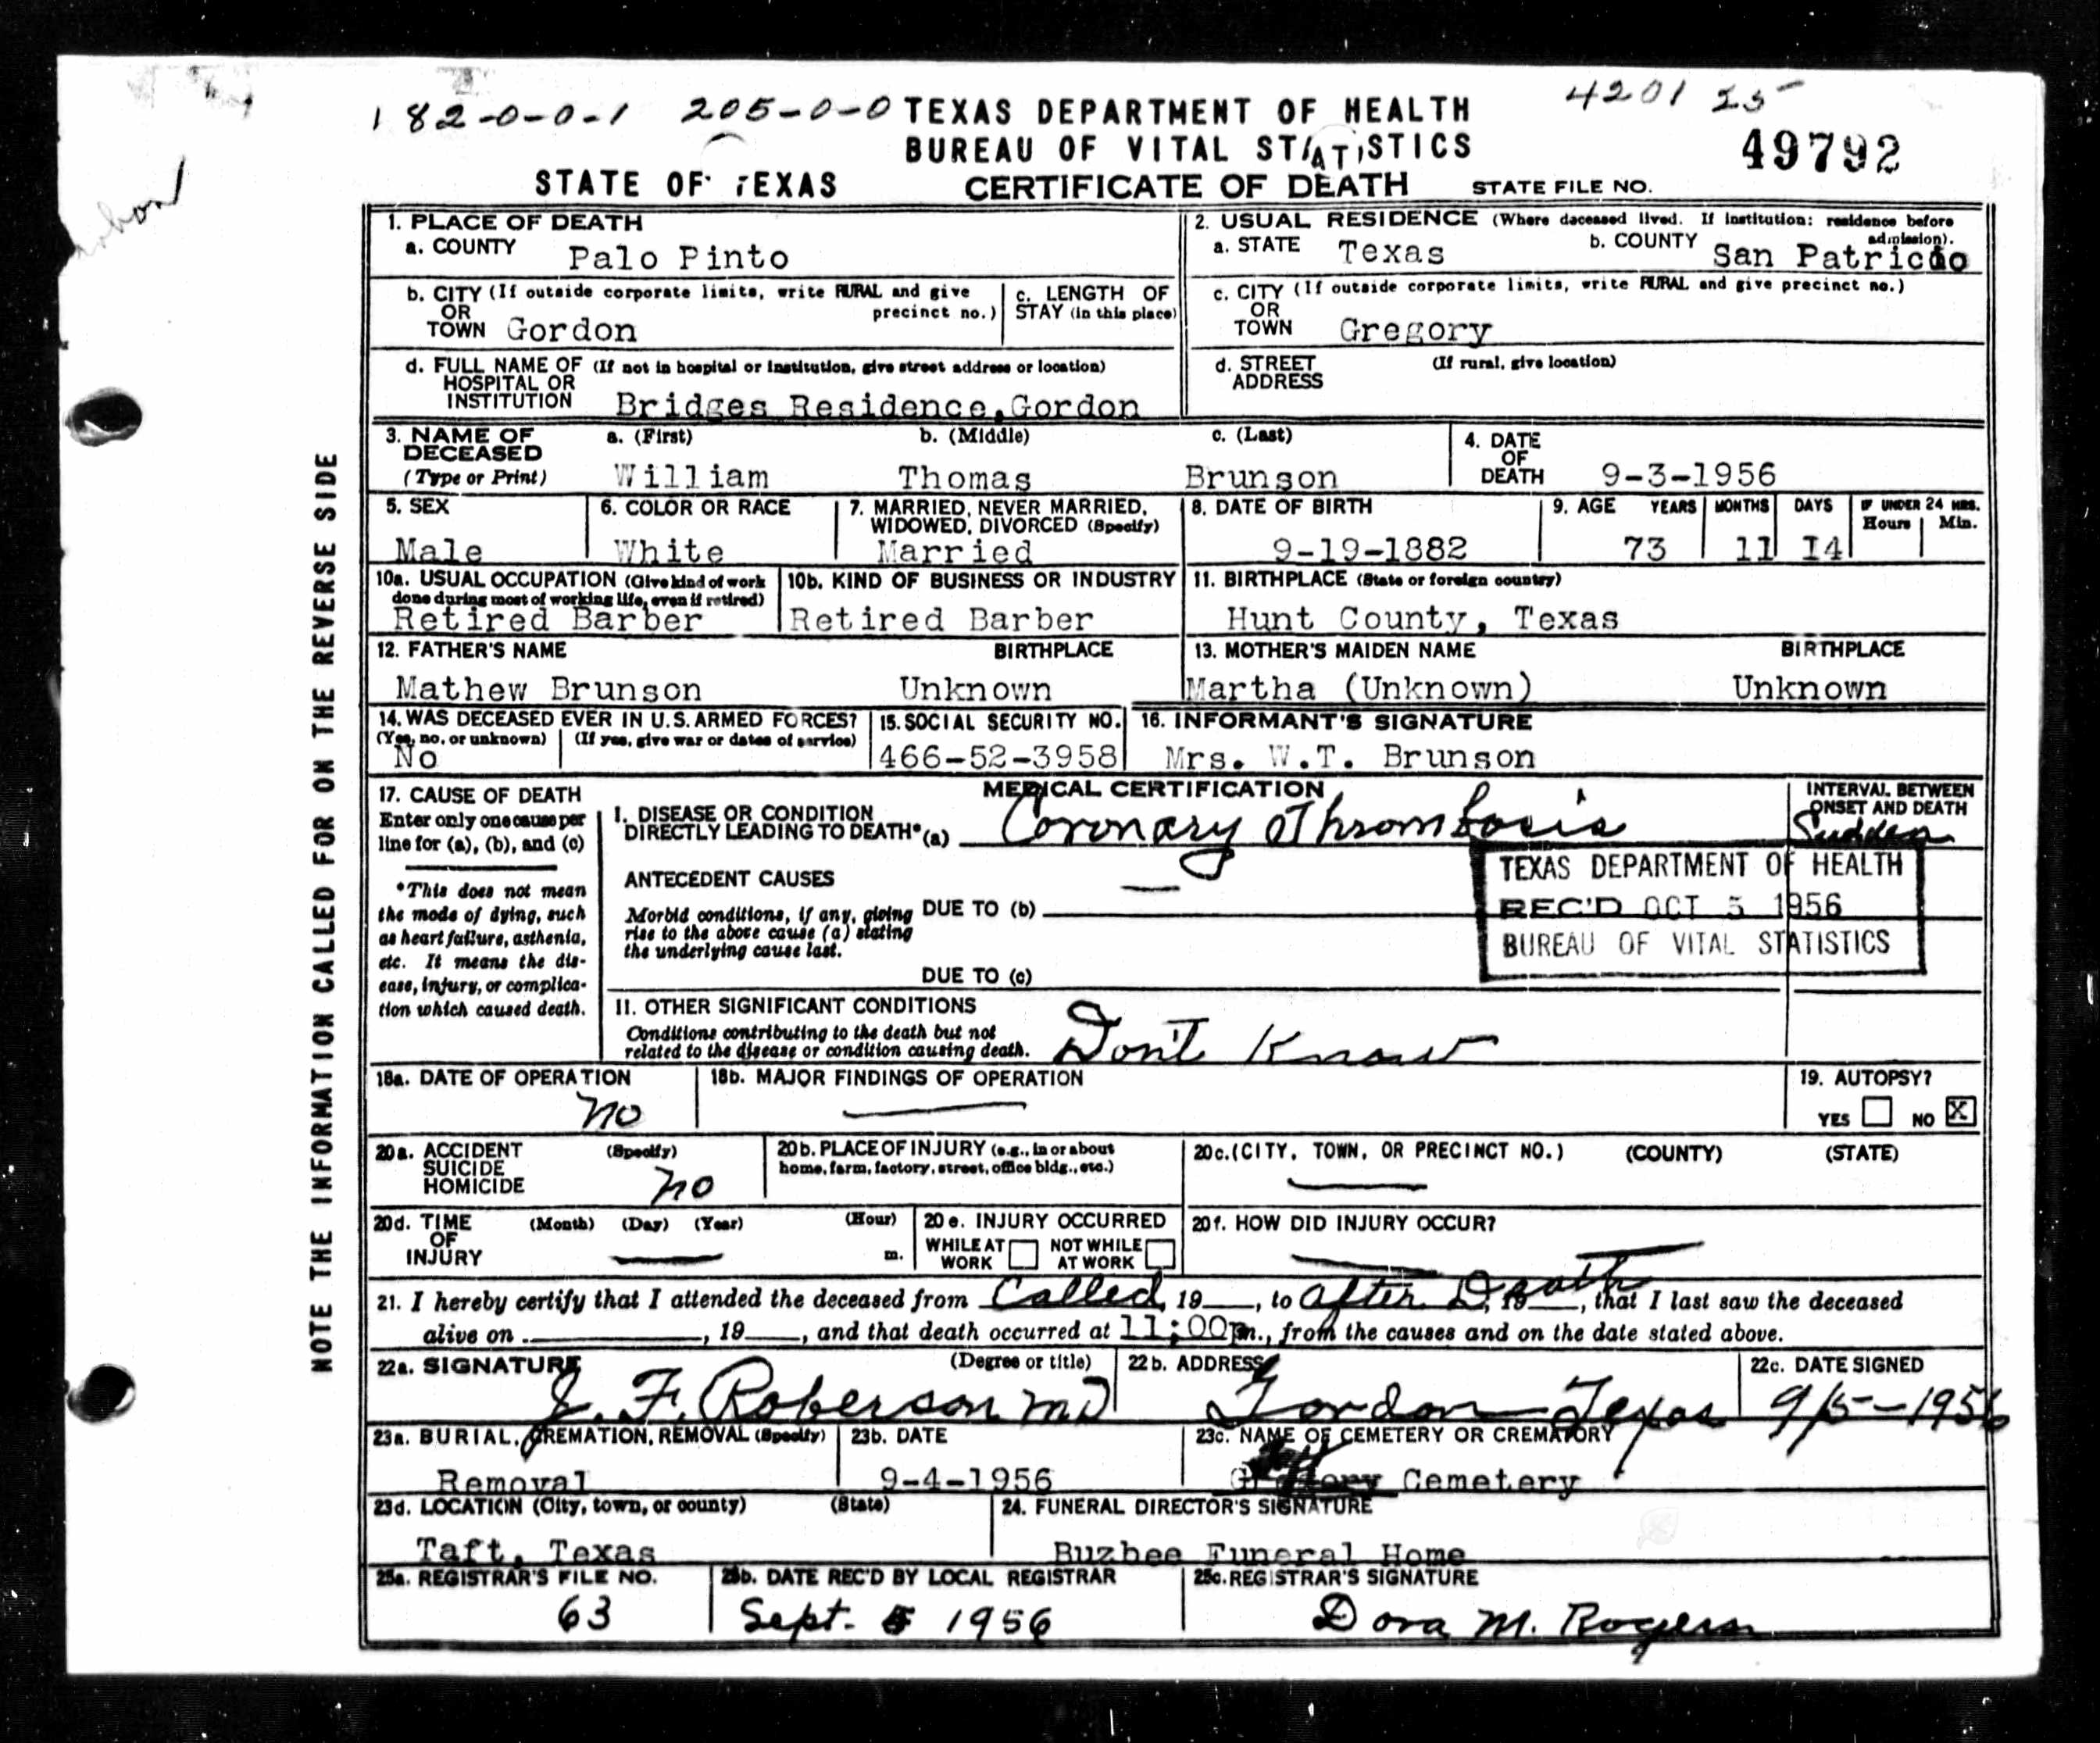 182-0-0-1 205-0-0 TEXAS DEPARTMENT OF HEALTH 4201 25
BUREAU OF VITAL STATISTICS 49792
STATE OF TEXAS CERTIFICATE OF DEATH STATE FILE NO.
NOTE THE INFORMATION CALLED FOR ON THE REVERSE SIDE
1. PLACE OF DEATH
a. COUNTY Palo Pinto
2. USUAL RESIDENCE (Where deceased lived. If institution: residence before admission).
a. STATE Texas b. COUNTY San Patricio
b. CITY (If outside corporate limits, write RURAL and give precinct no.)
OR
TOWN Gordon
c. LENGTH OF
STAY (in this place)
c. CITY (If outside corporate limits, write RURAL and give precinct no.)
OR
TOWN Gregory
d. FULL NAME OF (If not in hospital or institution, give street address or location)
HOSPITAL OR
INSTITUTION Bridges Residence,Gordon
d. STREET (If rural, give location)
ADDRESS
3. NAME OF DECEASED a. (First) b. (Middle) c. (Last)
(Type or Print) William Thomas Brunson
4. DATE
OF
DEATH 9-3-1956
5. SEX
Male
6. COLOR OR RACE
White
7. MARRIED, NEVER MARRIED,
WIDOWED, DIVORCED (Specify)
Married
8. DATE OF BIRTH
9-19-1882
9. AGE YEARS MONTHS DAYS IF UNDER 24 HRS.
Hours Min.
73 11 I4
10a. USUAL OCCUPATION (Give kind of work
done during most of working life, even if retired)
Retired Barber
10b. KIND OF BUSINESS OR INDUSTRY
Retired Barber
11. BIRTHPLACE (State or foreign country)
Hunt County, Texas
12. FATHER'S NAME BIRTHPLACE
Mathew Brunson Unknown
13. MOTHER'S MAIDEN NAME BIRTHPLACE
Martha (Unknown) Unknown
14. WAS DECEASED EVER IN U.S. ARMED FORCES?
(Yes, no, or unknown) (If yes, give war or dates of service)
No
15. SOCIAL SECURITY NO.
466-52-3958
16. INFORMANT'S SIGNATURE
Mrs. W.T. Brunson
MEDICAL CERTIFICATION
17. CAUSE OF DEATH
Enter only one cause per
line for (a), (b), and (c)
*This does not mean
the mode of dying, such
as heart failure, asthenia,
etc. It means the dis-
ease, injury, or complica-
tion which caused death.
I. DISEASE OR CONDITION
DIRECTLY LEADING TO DEATH* (a) Coronary Thrombosis
INTERVAL BETWEEN
ONSET AND DEATH
Sudden
ANTECEDENT CAUSES
Morbid conditions, if any, giving
rise to the above cause (a) stating
the underlying cause last.
DUE TO (b)
DUE TO (c)
TEXAS DEPARTMENT OF HEALTH
REC'D OCT 5 1956
BUREAU OF VITAL STATISTICS
II. OTHER SIGNIFICANT CONDITIONS
Conditions contributing to the death but not
related to the disease or condition causing death.
Don't Know
18a. DATE OF OPERATION
no
18b. MAJOR FINDINGS OF OPERATION
19. AUTOPSY?
YES NO X
20a. ACCIDENT (Specify)
SUICIDE
HOMICIDE no
20b. PLACE OF INJURY (e.g., in or about
home, farm, factory, street, office bldg., etc.)
20c. (CITY, TOWN, OR PRECINCT NO.) (COUNTY) (STATE)
20d. TIME (Month) (Day) (Year) (Hour)
OF
INJURY m.
20e. INJURY OCCURRED
WHILE AT WORK NOT WHILE AT WORK
20f. HOW DID INJURY OCCUR?
21. I hereby certify that I attended the deceased from Called, 19 , to after Death, 19 , that I last saw the deceased
alive on , 19 , and that death occurred at 11:00pm., from the causes and on the date stated above.
22a. SIGNATURE (Degree or title)
J. F. Roberson MD
22b. ADDRESS
Gordon Texas
22c. DATE SIGNED
9/5-1956
23a. BURIAL, CREMATION, REMOVAL (Specify)
Removal
23b. DATE
9-4-1956
23c. NAME OF CEMETERY OR CREMATORY
Cemetery
23d. LOCATION (City, town, or county) (State)
Taft, Texas
24. FUNERAL DIRECTOR'S SIGNATURE
Buzbee Funeral Home
25a. REGISTRAR'S FILE NO.
63
25b. DATE REC'D BY LOCAL REGISTRAR
Sept. 5 1956
25c. REGISTRAR'S SIGNATURE
Dora M. Rogers